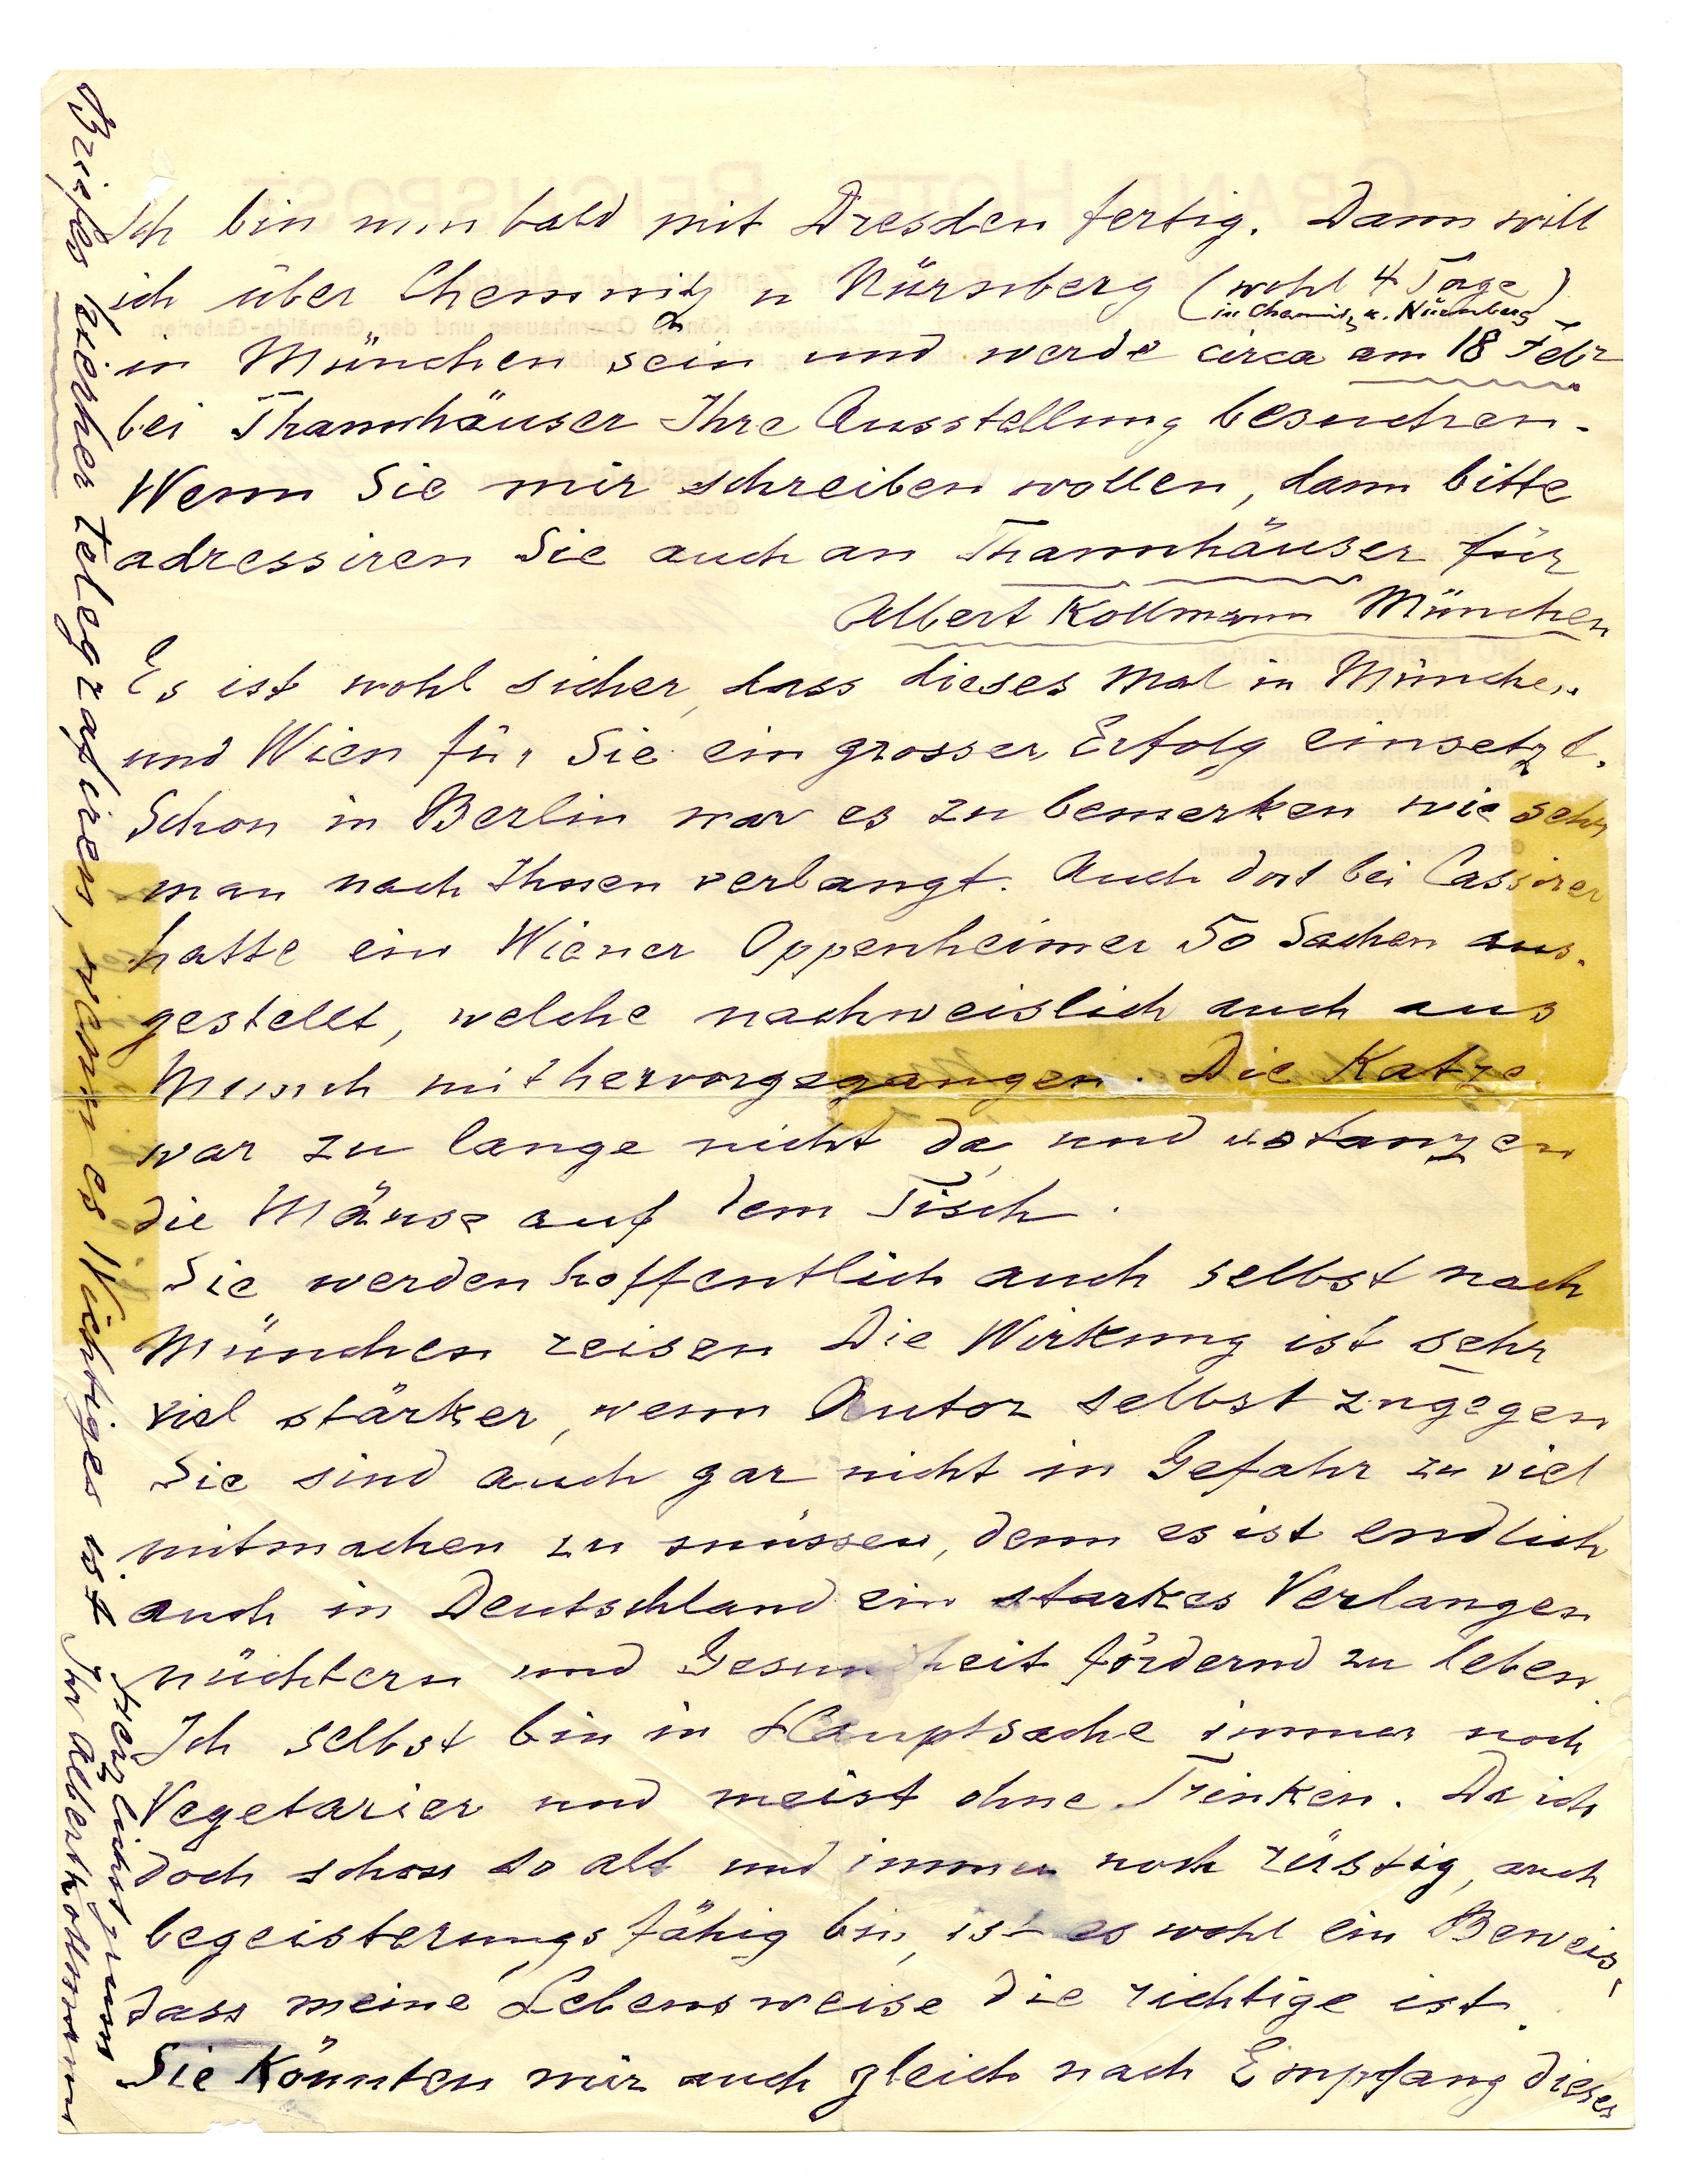 Ich bin nun bald mit Dresden fertig. Dann will
ich über Chemnitz u Nürnberg (wohl 4 Tage)
in Chemnitz u. Nürnberg
in München sein und werde circa am 18 Febr
bei Thannhäuser Ihre Ausstellung besuchen.
Wenn Sie mir schreiben wollen, dann bitte
adressiren Sie auch an Thannhäuser für
Albert Kollmann München
Es ist wohl sicher, dass dieses Mal in München
und Wien für Sie ein grosser Erfolg einsetzt.
Schon in Berlin war es zu bemerken wie sehr
man nach Ihnen verlangt. Auch dort bei Cassirer
hatte ein Wiener Oppenheimer 50 Sachen aus-
gestellt, welche nachweislich auch aus
Munch mit hervorgegangen. Die Katze
war zu lange nicht da, und es tanzen
die Mäuse auf dem Tisch.
Sie werden hoffentlich auch selbst nach
München reisen Die Wirkung ist sehr
viel stärker, wenn Autor selbst zugegen
Sie sind auch gar nicht in Gefahr zu viel
mitmachen zu müssen, denn es ist endlich
auch in Deutschland ein starkes Verlangen
nüchtern und Gesundheit fördernd zu leben.
Ich selbst bin in Hauptsache immer noch
Vegetarier und meist ohne Trinken. Da ich
doch schon so alt und immer noch rüstig, auch
begeisterungsfähig bin, ist es wohl ein Beweis,
dass meine Lebensweise die richtige ist.
Sie könnten mir auch gleich nach Empfang dieses
Briefes hierher telegrafiren, wenn es Wichtiges ist
Herzlichst grüsst
Ihr Albert Kollmann